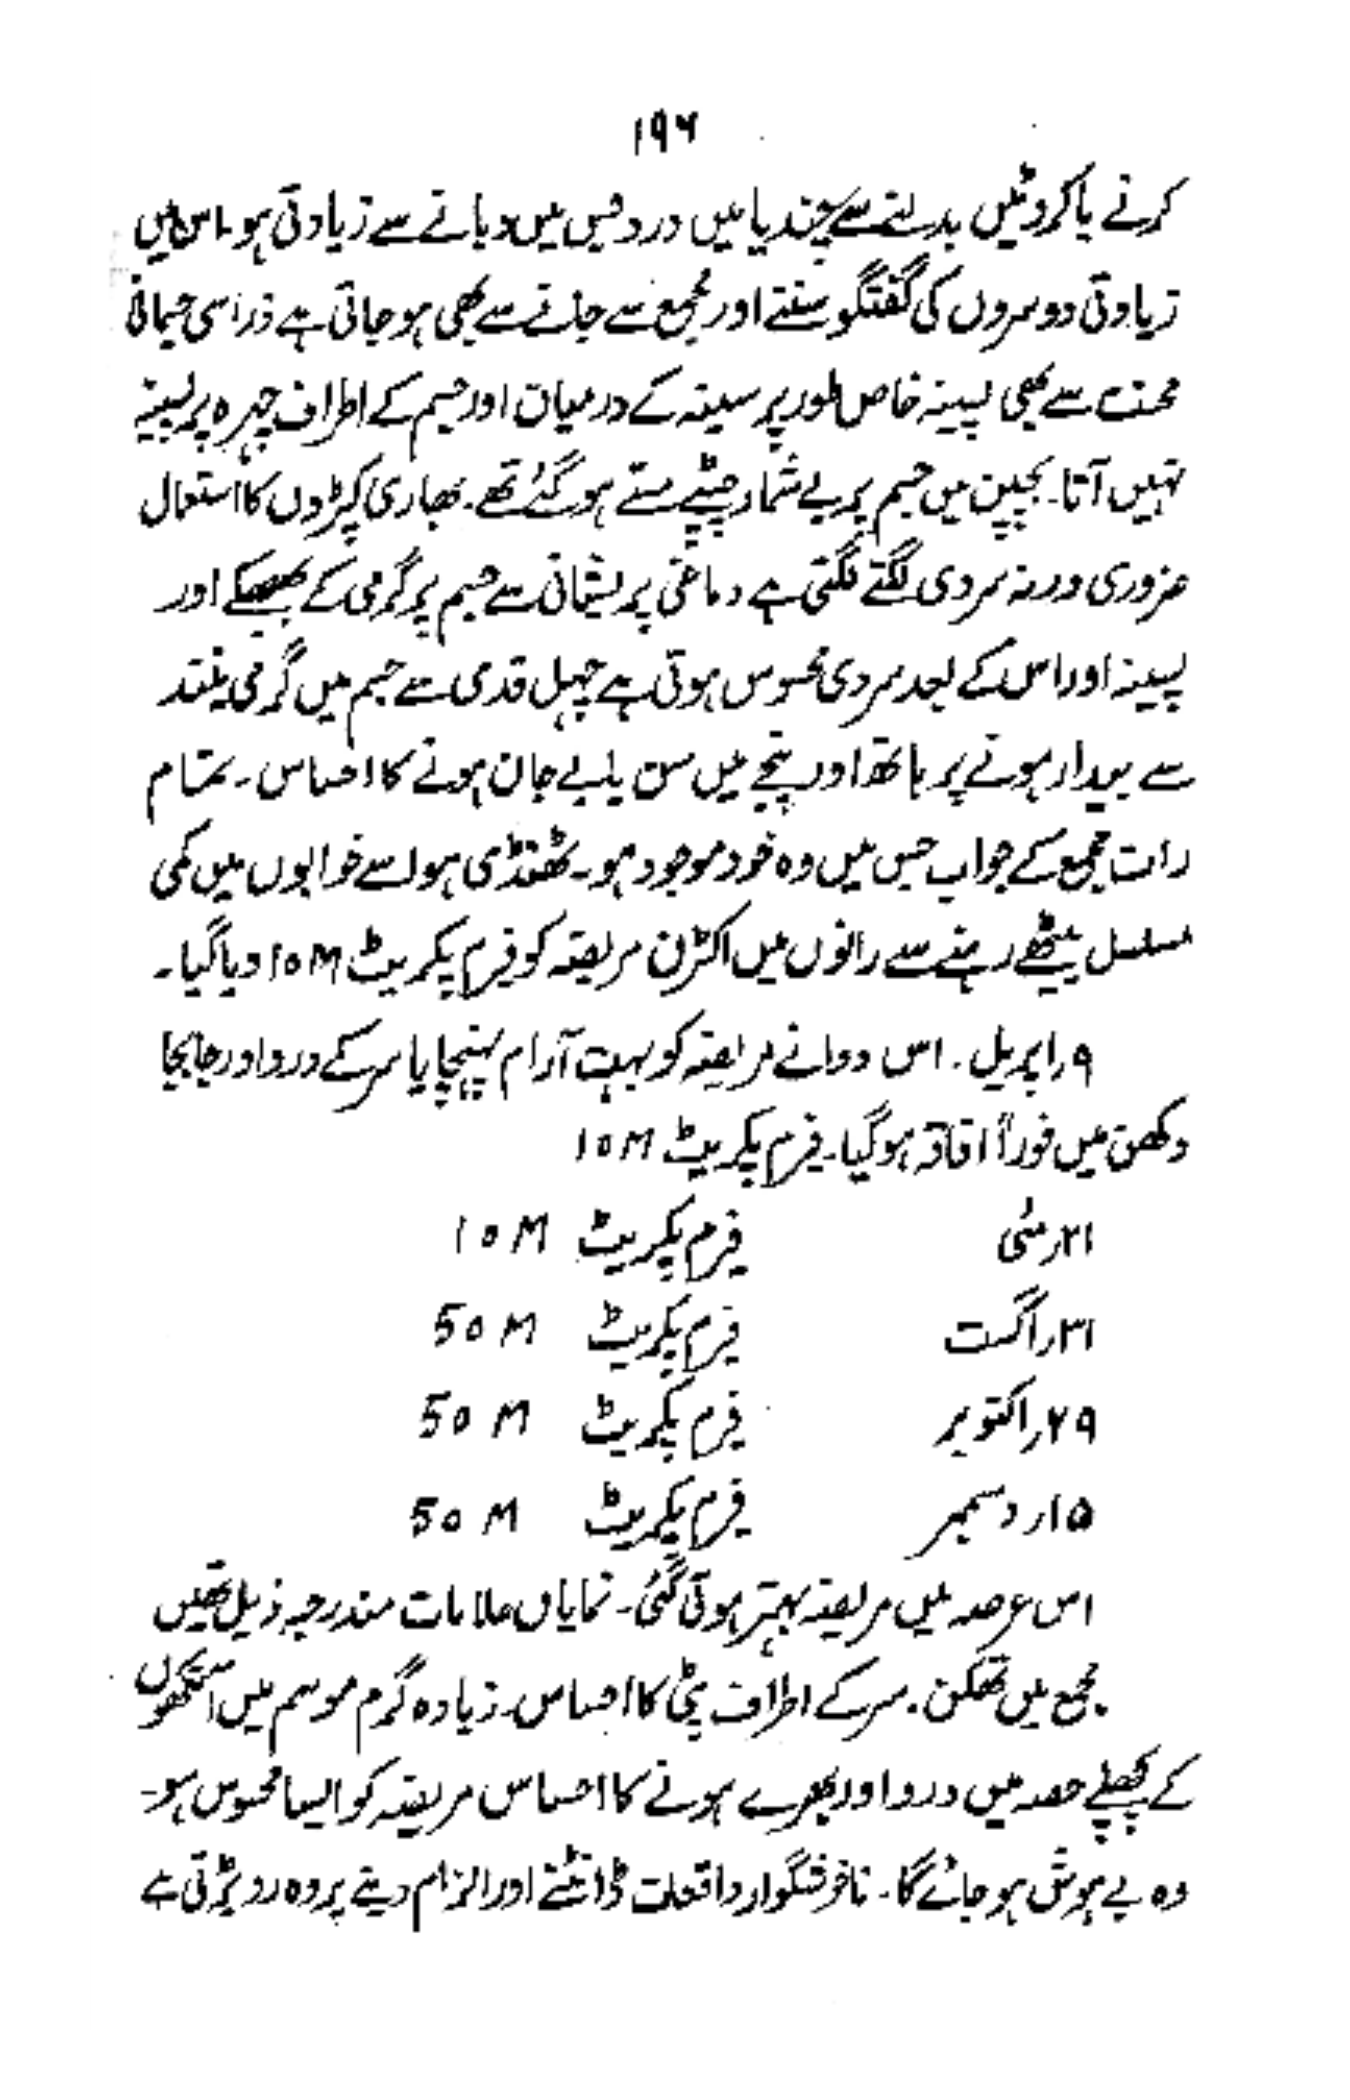 ۱۹۶
کرنے یا کروٹیں بدلنے سے چندیا میں درد جس میں دبانے سے زیادتی ہو۔ اس میں
زیادتی دوسروں کی گفتگو سننے اور مجمع سے جانے سے بھی ہو جاتی ہے ذرا سی جسمانی
محنت سے بھی پسینہ خاص طور پر سینہ کے درمیان اور جسم کے اطراف چہرہ پر پسینہ
نہیں آتا۔ بچپن میں جسم پر بے شمار چپٹے مسے ہو گئے تھے۔ بھاری کپڑوں کا استعمال
ضروری ورنہ سردی لگنے لگتی ہے دماغی پریشانی سے جسم پر گرمی کے بھبھکے اور
پسینہ اور اس کے بعد سردی محسوس ہوتی ہے چہل قدمی سے جسم میں گرمی نیند
سے بیدار ہونے پر ہاتھ اور پنجے میں سن یا بے جان ہونے کا احساس۔ تمام
رات مجمع کے جواب جس میں وہ خود موجود ہو۔ ٹھنڈی ہوا سے خوابوں میں کمی
مسلسل بیٹھے رہنے سے رانوں میں اکڑن مریضہ کو فیرم پکریٹ 10M دیا گیا۔
۹ر اپریل۔ اس دوا نے مریضہ کو بہت آرام پہنچایا سر کے درد اور جابجا
دکھن میں فوراً افاقہ ہو گیا۔ فیرم پکریٹ 10M
۲۱ر مئی فیرم پکریٹ 10M
۳۱ر اگست فیرم پکریٹ 50M
۲۹ر اکتوبر فیرم پکریٹ 50M
۱۵ر دسمبر فیرم پکریٹ 50M
اس عرصہ میں مریضہ بہتر ہوتی گئی۔ نمایاں علامات مندرجہ ذیل تھیں
مجمع میں تھکن۔ سر کے اطراف پٹی کا احساس۔ زیادہ گرم موسم میں آنکھوں
کے پچھلے حصہ میں درد اور بھرے ہونے کا احساس مریضہ کو ایسا محسوس ہو۔
وہ بے ہوش ہو جائے گا۔ ناخوشگوار واقعات ڈانٹنے اور الزام دینے پر وہ رو پڑتی ہے